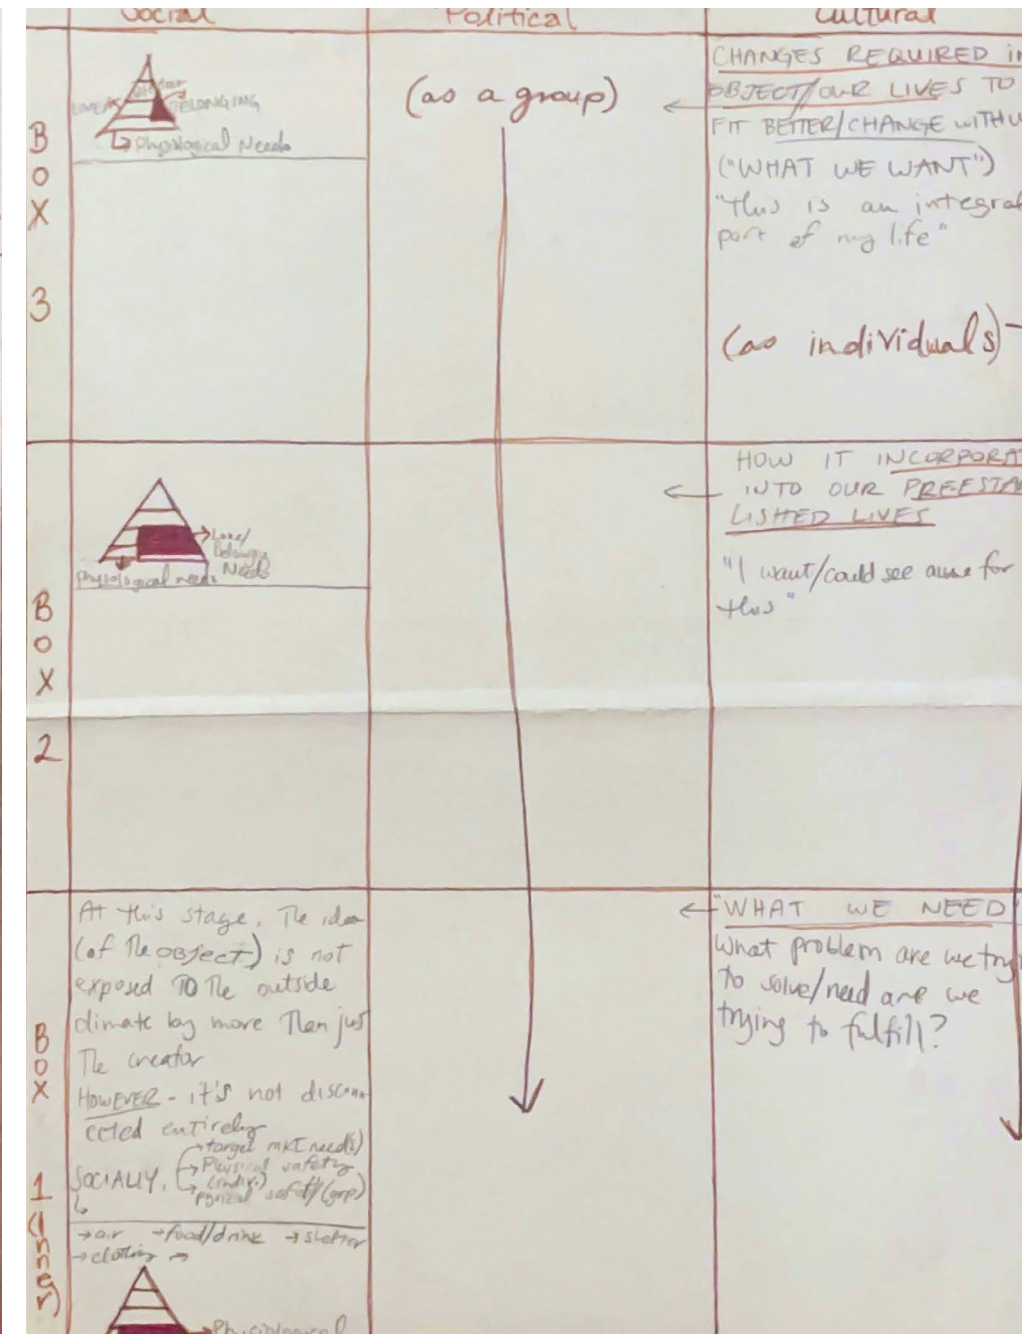 Social
Political
Cultural
BOX 3
LOVE
BELONGING
Physiological Needs
(as a group)
CHANGES REQUIRED in
OBJECT/OUR LIVES TO
FIT BETTER/CHANGE WITH U
("WHAT WE WANT")
"this is an integral
part of my life"
(as individuals)
BOX 2
Love/
Belonging
Needs
physiological needs
HOW IT INCORPORA
INTO OUR PREESTA
LISHED LIVES
"I want/could see a use for
this"
BOX 1 (Inner)
At this stage, The idea
(of The OBJECT) is not
exposed TO The outside
climate by more Then just
The creator
HOWEVER - it's not discon
ected entirely
SOCIALLY,
target mkt need(s)
Physical safety
(indiv.)
physical safety (grp)
air food/drink shelter
clothing
Physiological
"WHAT WE NEED"
What problem are we try
to solve/need are we
trying to fulfill?